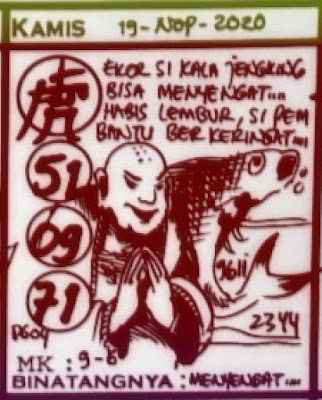 KAMIS 19-NOP-2020
EKOR SI KALA JENGKING
BISA MENYENGAT....
HABIS LEMBUR, SI PEM
BANTU BERKERINGAT....
虎
51
09
71
9611
2344
P604
MK : 9-6
BINATANGNYA : MENYENGAT....